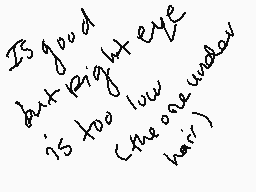 Is good
but Right eye
is too low
(the one under
hair)